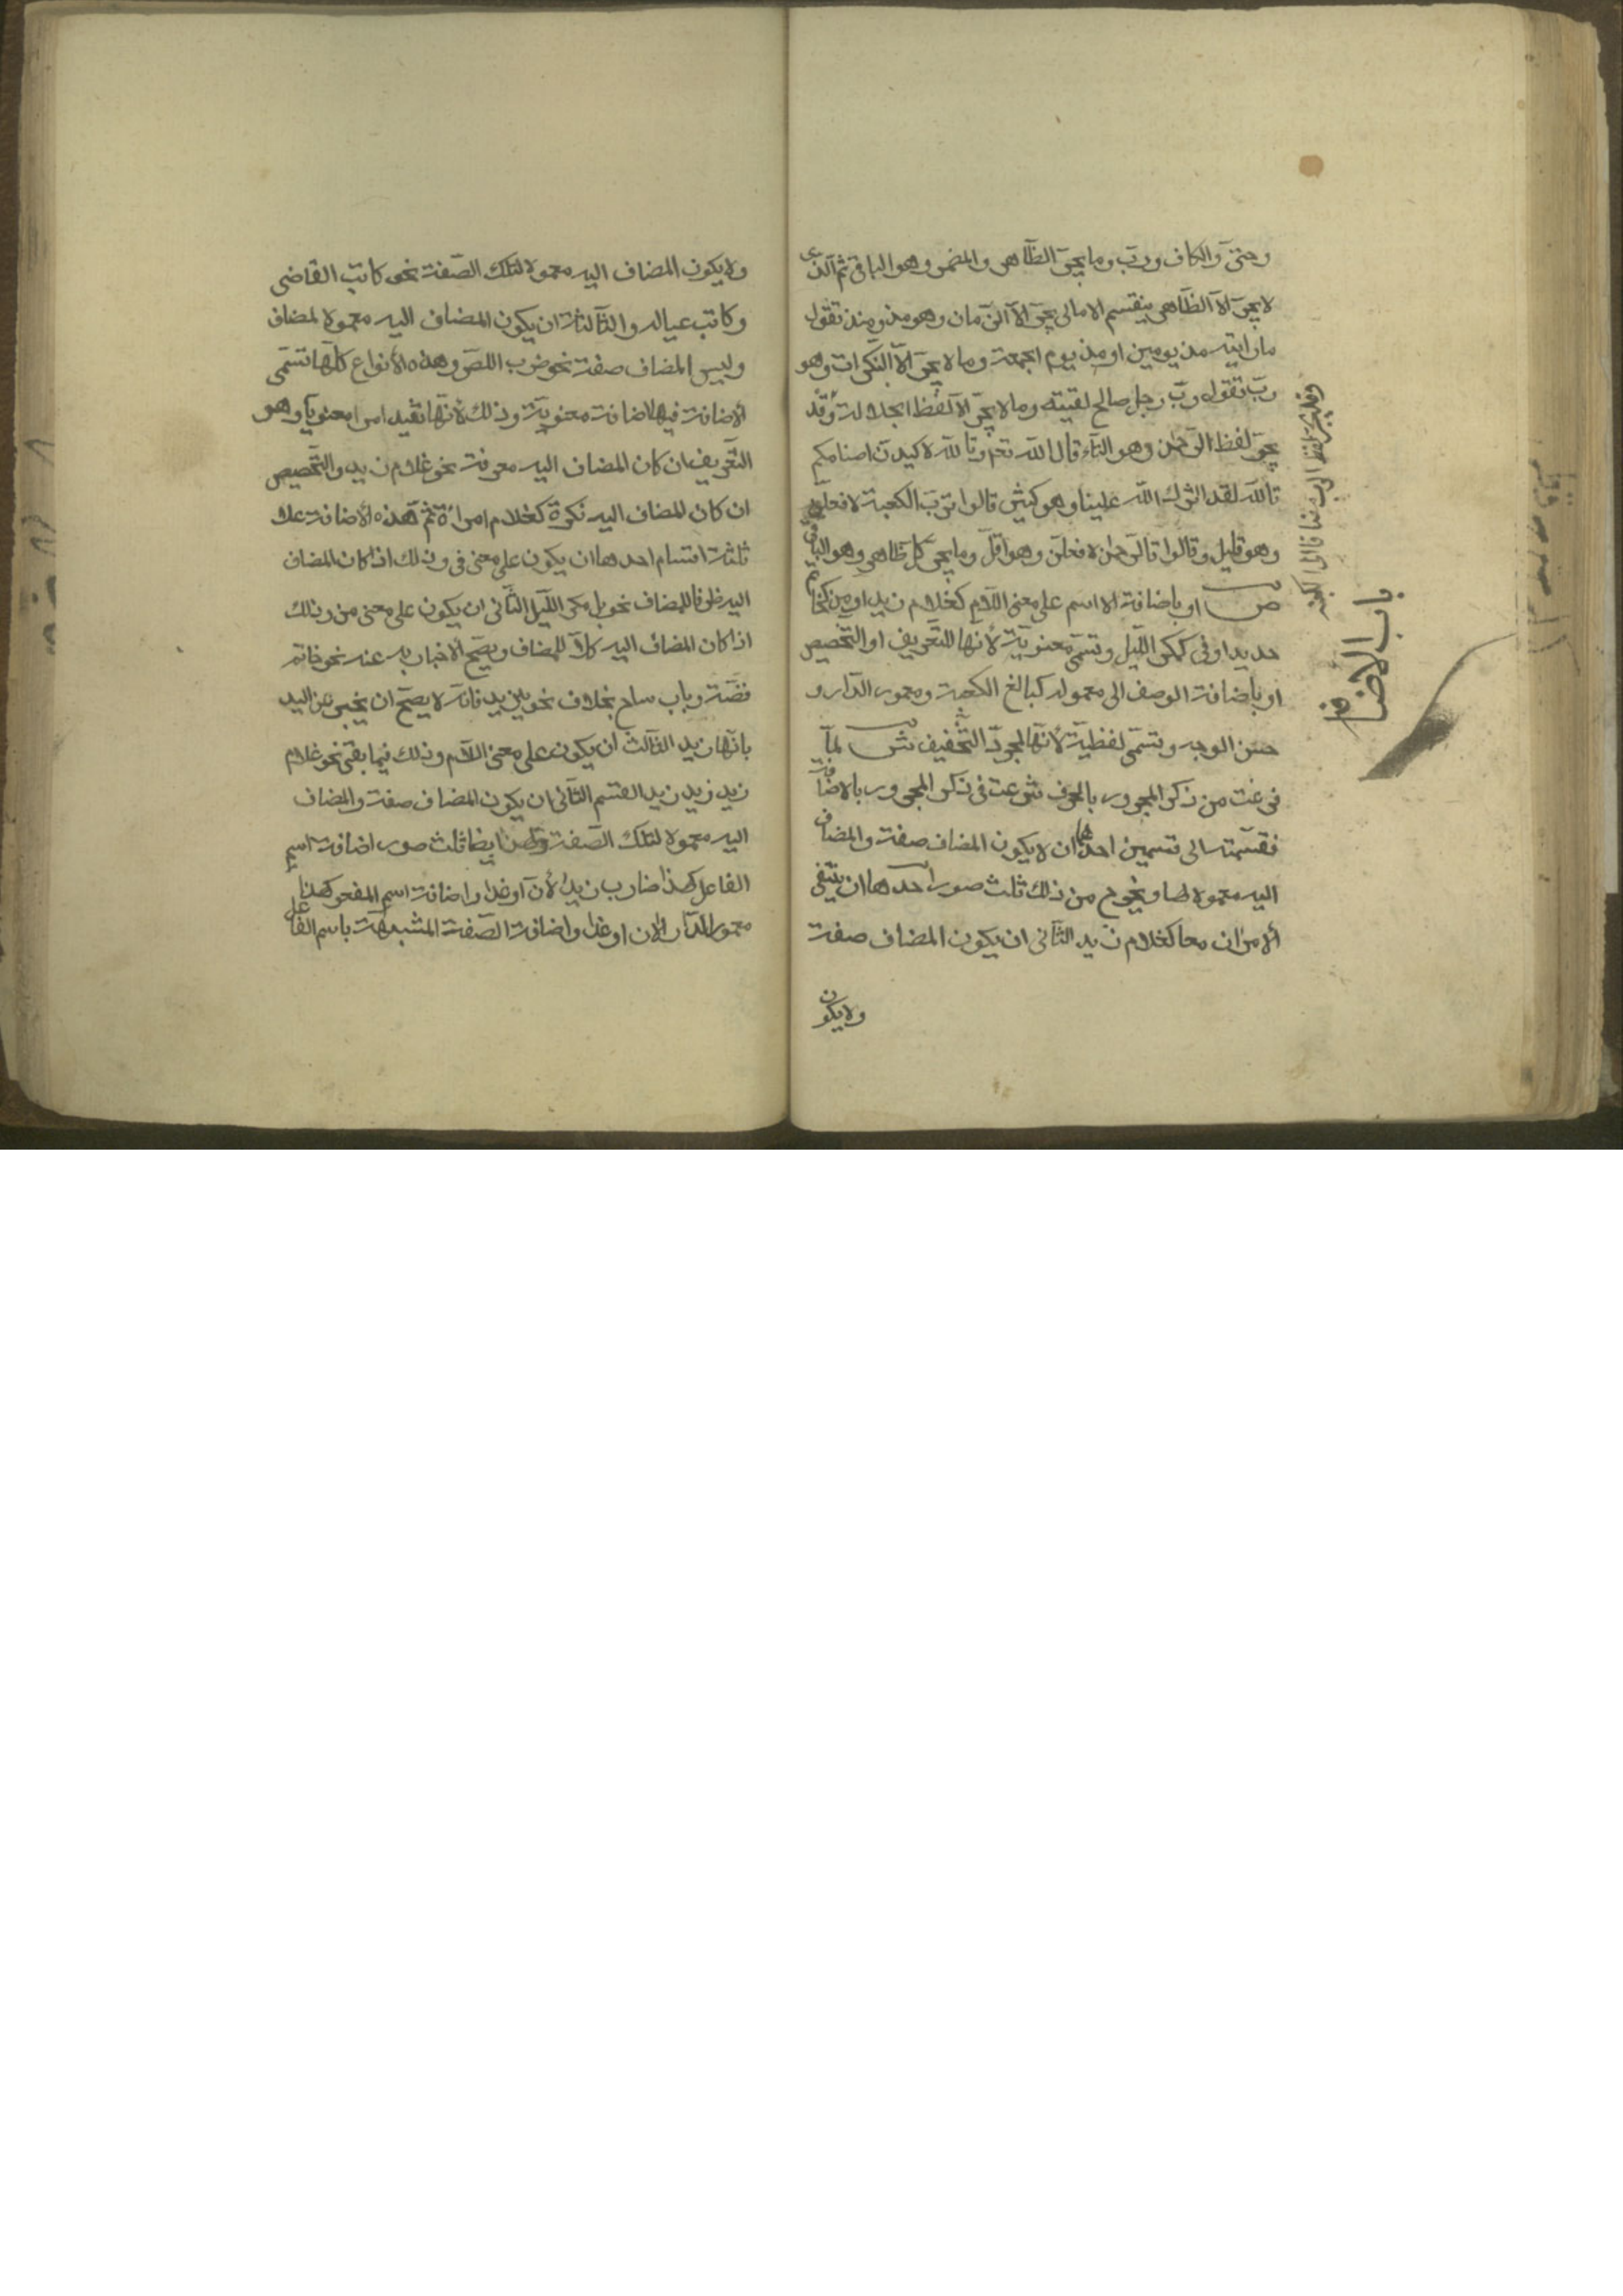 وحتى والكاف ورب وما يجر الظاهر والمضمر وهو الباقي ثم الذى
لا يجر الا الظاهر ينقسم الا مالى يجر الا الزمان وهو مذ ومنذ تقول
ما رايته مذ يومين او مذ يوم الجمعة وما لا يجر الا النكرات وهو
رب تقول رب رجل صالح لقيته وما لا يجر الا لفظ الجلالة وقد
يجر لفظ الرحمن وهو التاء قال الله تعم وتالله لاكيدن اصنامكم
تالله لقد اثرك الله علينا وهو كثير قالوا ترب الكعبة لافعلن
وهو قليل وقالوا تالرحمن لافعلن وهو اقل وما يجر كل ظاهر وهو الباقى
ص او باضافة الاسم على معنى اللام كغلام زيد او من كخاتم
حديد او فى كمكر الليل وتسمى معنوية لانها للتعريف او التخصيص
او باضافة الوصف الى معموله كبالغ الكعبة ومعمور الدار و
حسن الوجه وتسمى لفظية لانها لمجرد التخفيف ش لما
فرغت من ذكر المجرور بالحرف شرعت فى ذكر المجرور بالاضافة
فقسمته الى قسمين احدها ان لا يكون المضاف صفة والمضاف
اليه معمولا لها ويخرج من ذلك ثلث صور احدها ان ينتفى
الامران معا كغلام زيد الثانى ان يكون المضاف صفة
ولا يكون
باب الاضافة
ولا يكون المضاف اليه معمولا لتلك الصفة نحو كاتب القاضى
وكاتب عياله والثالثة ان يكون المضاف اليه معمولا لمضاف
وليس المضاف صفة نحو ضرب اللص وهذه الأنواع كلها تسمى
الاضافة فيها اضافة معنوية وذلك لأنها تفيد امرا معنويا وهو
التعريف ان كان المضاف اليه معرفة نحو غلام زيد والتخصيص
ان كان المضاف اليه نكرة كغلام امراة ثم هذه الاضافة على
ثلثة اقسام احدها ان يكون على معنى فى وذلك اذا كان المضاف
اليه ظرفا للمضاف نحو بل مكر الليل الثانى ان يكون على معنى من وذلك
اذا كان المضاف اليه كلا للمضاف ويصح الاخبار به عنه نحو خاتم
فضة وباب ساج بخلاف نحو يد زيد فانه لا يصح ان يخبر عن اليد
بانها زيد الثالث ان يكون على معنى اللام وذلك فيما بقى نحو غلام
زيد زيد زيد القسم الثانى ان يكون المضاف صفة والمضاف
اليه معمولا لتلك الصفة ولهذا ايضا ثلث صور اضافة اسم
الفاعل كهذا ضارب زيد الأن او غدا واضافة اسم المفعول كهذا
معمور الدار الان او غدا واضافة الصفة المشبهة باسم الفاعل